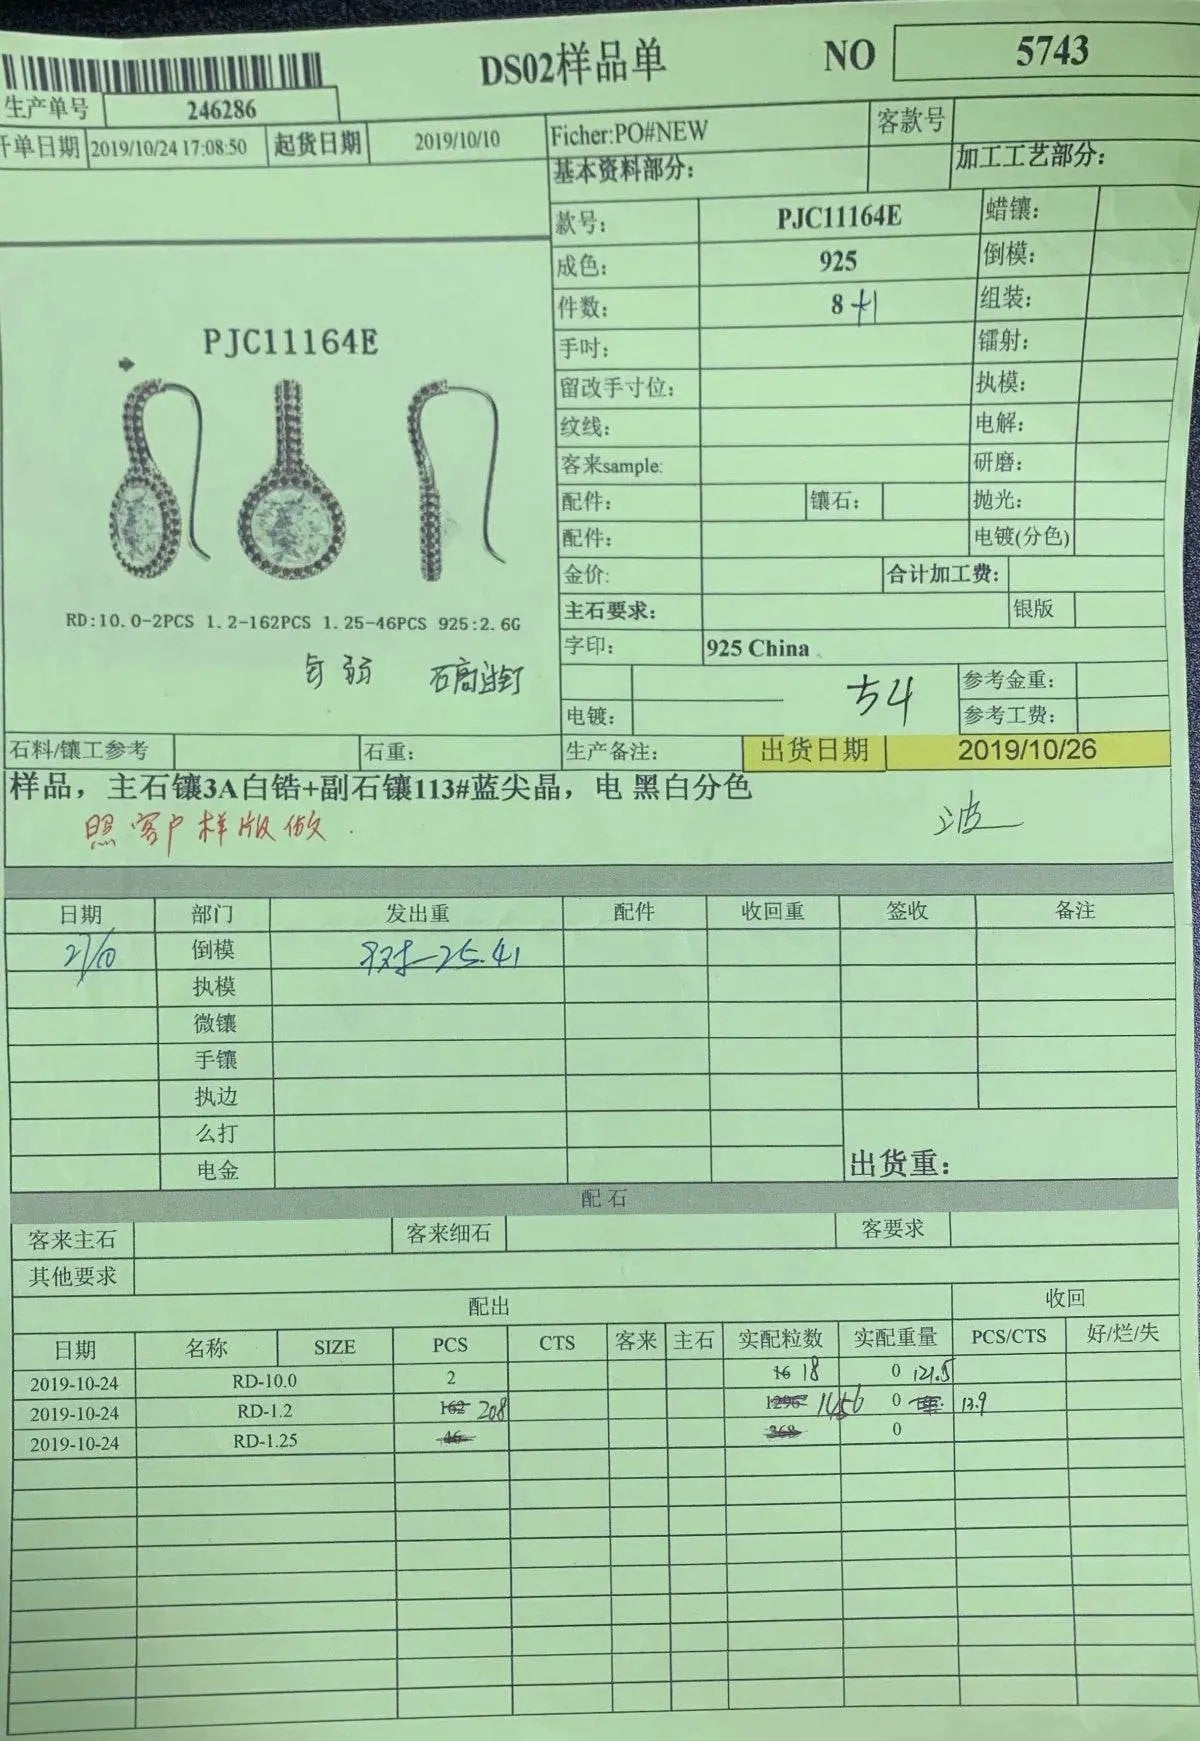 DS02样品单 NO 5743
生产单号 246286
开单日期 2019/10/24 17:08:50 起货日期 2019/10/10 Ficher:PO#NEW 客款号
基本资料部分: 加工工艺部分:
款号: PJC11164E 蜡镶:
成色: 925 倒模:
件数: 8 +1 组装:
手吋: 镭射:
留改手寸位: 执模:
纹线: 电解:
客来sample: 研磨:
配件: 镶石: 抛光:
配件: 电镀(分色)
金价: 合计加工费:
主石要求: 银版
字印: 925 China
参考金重:
电镀: 参考工费:
PJC11164E
RD:10.0-2PCS 1.2-162PCS 1.25-46PCS 925:2.6G
石高过钉
石料/镶工参考 石重: 生产备注: 出货日期 2019/10/26
样品，主石镶3A白锆+副石镶113#蓝尖晶，电 黑白分色
照客户样版做.
波
日期 部门 发出重 配件 收回重 签收 备注
27/10 倒模 25.41
执模
微镶
手镶
执边
么打
电金
出货重:
配石
客来主石 客来细石 客要求
其他要求
配出 收回
日期 名称 SIZE PCS CTS 客来 主石 实配粒数 实配重量 PCS/CTS 好/烂/失
2019-10-24 RD-10.0 2 16 18 0 121.5
2019-10-24 RD-1.2 162 208 1296 1456 0 13.9
2019-10-24 RD-1.25 46 368 0